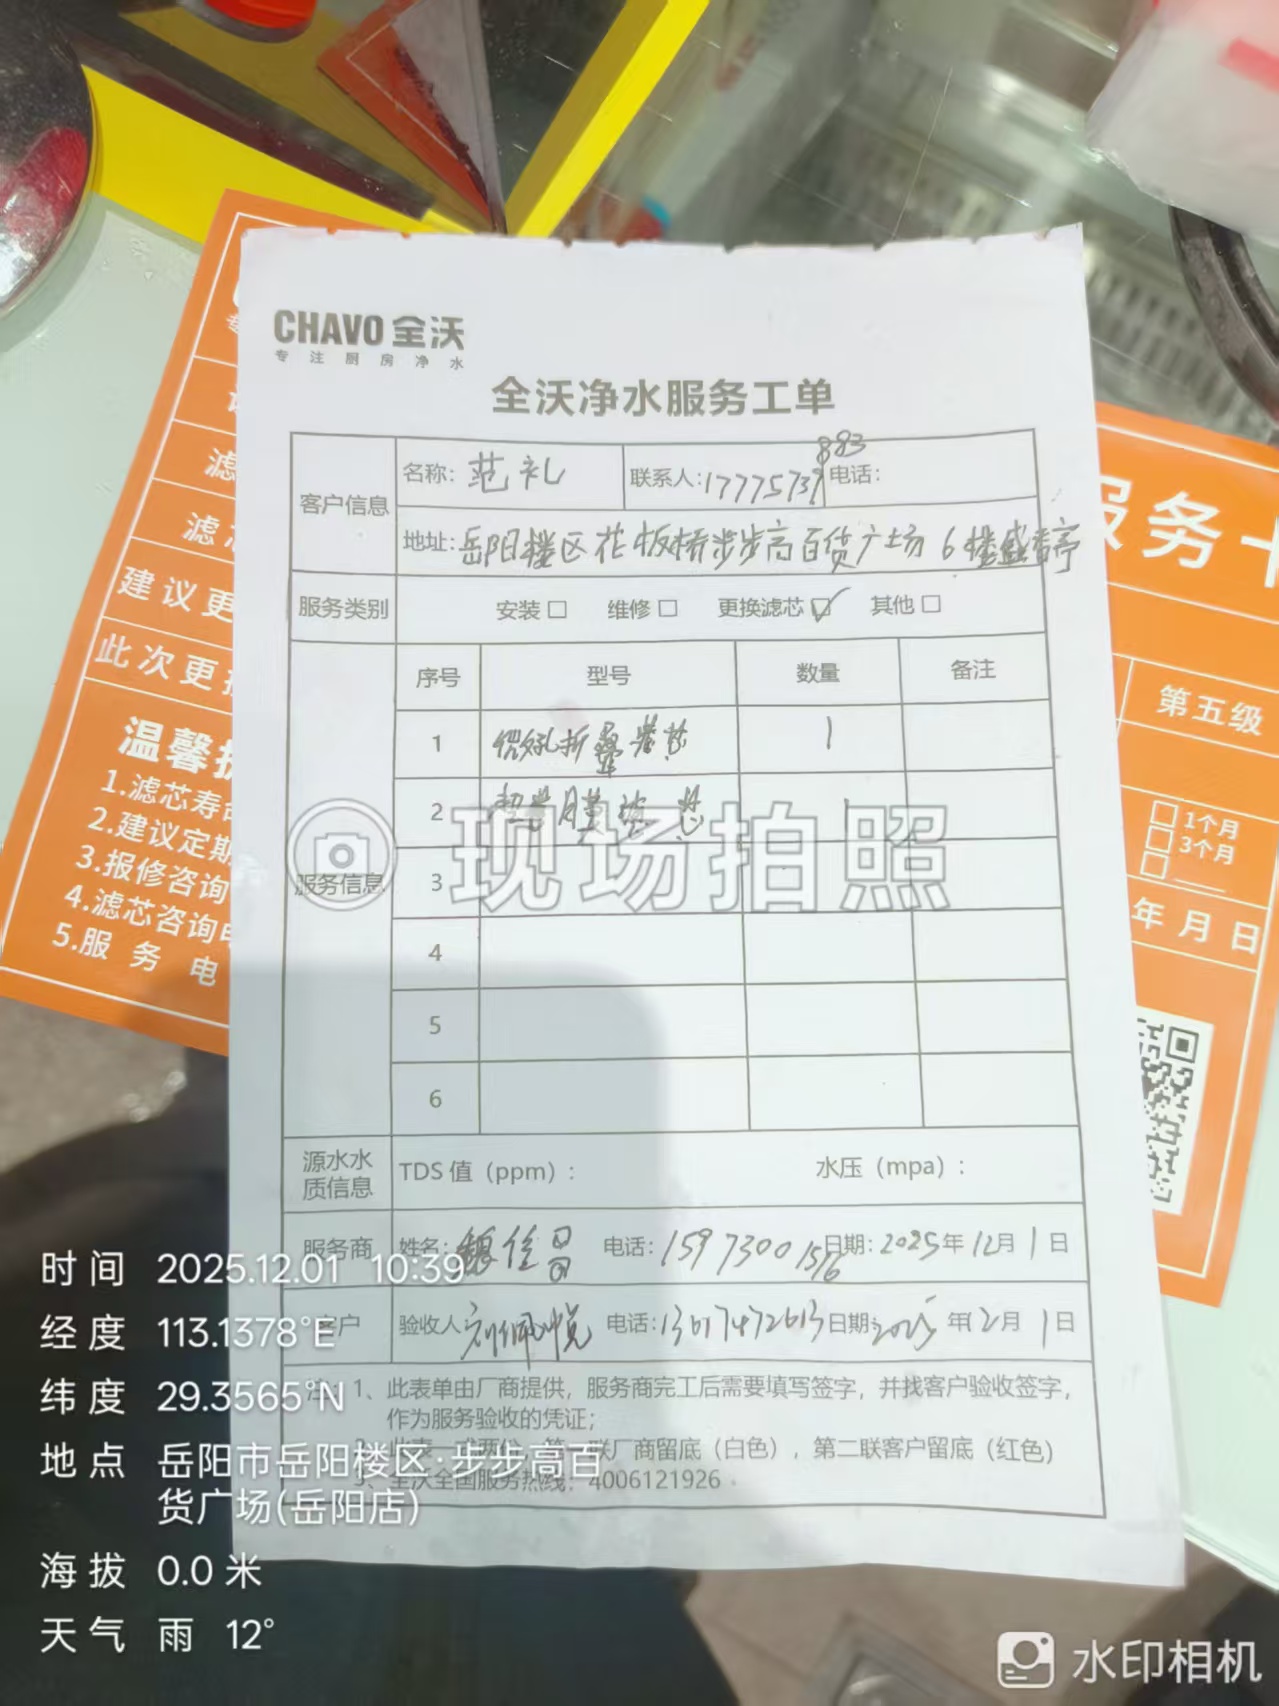 CHAVO 全沃
专注厨房净水
全沃净水服务工单
客户信息
名称: 范礼
联系人: 17775739883
电话:
地址: 岳阳楼区花板桥步步高百货广场6楼盛香亭
服务类别
安装□ 维修□ 更换滤芯☑ 其他□
服务信息
序号 型号 数量 备注
1 微孔折叠滤芯 1
2 超滤膜滤芯 1
3
4
5
6
源水水质信息
TDS 值（ppm）: 水压（mpa）:
服务商 姓名: 魏佳 电话: 15973001516 日期: 2025年12月1日
客户 验收人: 刘佩悦 电话: 13617472613 日期: 2025年12月1日
注: 1、此表单由厂商提供，服务商完工后需要填写签字，并找客户验收签字，
作为服务验收的凭证；
2、此表一式两份，第一联厂商留底（白色），第二联客户留底（红色）
3、全沃全国服务热线: 4006121926
现场拍照
时间 2025.12.01 10:39
经度 113.1378°E
纬度 29.3565°N
地点 岳阳市岳阳楼区·步步高百
货广场(岳阳店)
海拔 0.0 米
天气 雨 12°
水印相机
滤芯
建议更
此次更换
温馨提
1.滤芯寿命
2.建议定期
3.报修咨询
4.滤芯咨询电
5.服务电
服务卡
第五级
□1个月
□3个月
□
年月日